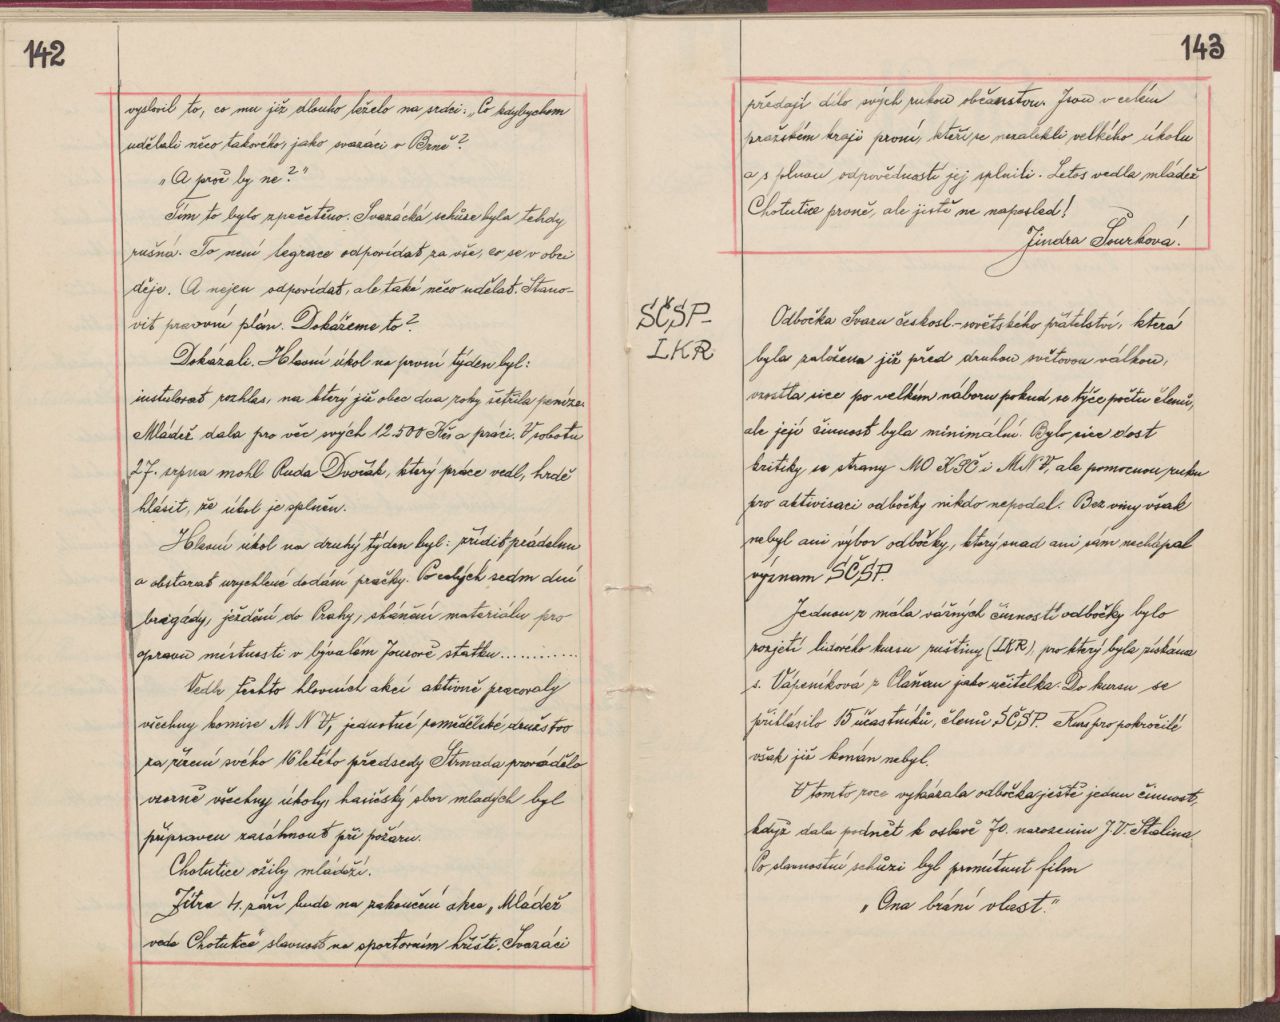 142
vyslovil to, co mu již dlouho leželo na srdci: „Co kdybychom
udělali něco takového, jako svazáci v Brně?
„A proč by ne?"
Tím to bylo zpečetěno. Svazácká schůze byla tehdy
rušná. To není legrace odpovídat za vše, co se v obci
děje. A nejen odpovídat, ale také něco udělat. Stano-
vit pracovní plán. Dokážeme to?
Dokázali. Hlavní úkol na první týden byl:
instalovat rozhlas, na který již obec dva roky šetřila peníze.
Mládež dala pro věc svých 12.500 Kčs a práci. V sobotu
27. srpna mohl Ruda Dvořák, který práce vedl, hrdě
hlásit, že úkol je splněn.
Hlavní úkol na druhý týden byl: zřídit prádelnu
a obstarat urychlené dodání pračky. Po celých sedm dní
brigády, ježdění do Prahy, shánění materiálu pro
opravu místnosti v bývalém Jourově statku............
Vedle těchto hlavních akcí aktivně pracovaly
všechny komise M N V, jednotné zemědělské družstvo
za řízení svého 16letého předsedy Strnada provádělo
vzorně všechny úkoly, hasičský sbor mladých byl
připraven zasáhnout při požáru.
Chotutice ožily mládeží.
Zítra 4. září bude na zakončení akce „Mládež
vede Chotutice" slavnost na sportovním hřišti. Svazáci
143
předají dílo svých rukou občanstvu. Jsou v celém
pražském kraji první, kteří se nezalekli velkého úkolu
a s plnou odpovědností jej splnili. Letos vedla mládež
Chotutice prvně, ale jistě ne naposled!
Jindra Šourková.
SČSP-
LKR
Odbočka Svazu českosl.-sovětského přátelství, která
byla založena již před druhou světovou válkou,
vzrostla sice po velkém náboru pokud se týče počtu členů,
ale její činnost byla minimální. Bylo sice dost
kritiky se strany MO KSČ i MNV, ale pomocnou ruku
pro aktivisaci odbočky nikdo nepodal. Bez viny však
nebyl ani výbor odbočky, který snad ani sám nechápal
význam SČSP.
Jednou z mála vážných činností odbočky bylo
rozjetí lidového kursu ruštiny (LKR), pro který byla získána
s. Vápeníková z Olšan jako učitelka. Do kursu se
přihlásilo 15 účastníků, členů SČSP. Kurs pro pokročilé
však již konán nebyl.
V tomto roce vykázala odbočka ještě jednu činnost,
když dala podnět k oslavě 70. narozenin J. V. Stalina
Po slavnostní schůzi byl promítnut film
„Ona brání vlast."